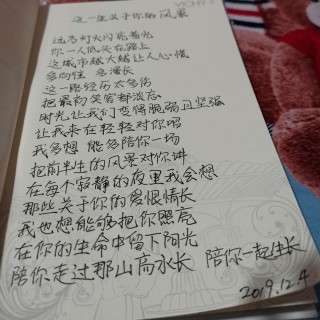 VICHY
这一生关于你的风景
远秀灯火闪亮着光
你一人低头在路上
这城市越大越让人心慌
多向往 多漫长
这一路经历太多伤
把最初笑容都淡忘
时光让我们变得脆弱且坚强
让我来在轻轻对你唱
我多想 能多陪你一场
把前半生的风景对你讲
在每个寂静的夜里我会想
那些关于你的爱恨情长
我也想能够把你照亮
在你的生命中留下阳光
陪你走过那山高水长 陪你一起生长
2019.12.4